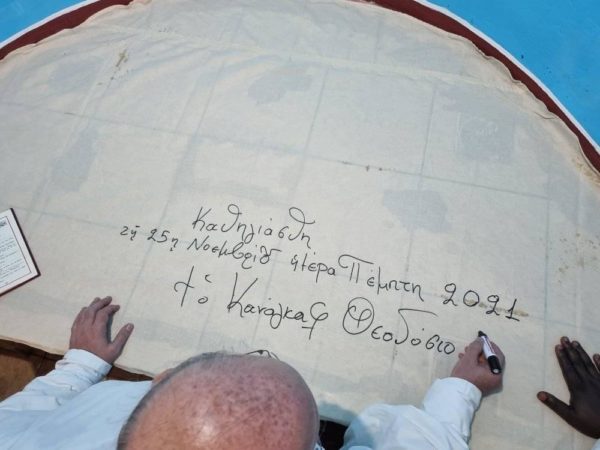 Καθηγιάσθη
τῇ 25ῃ Νοεμβρίȣ ἡμέρα Πέμπτη 2021
† ὁ Κανάγκας Θεοδόσιο